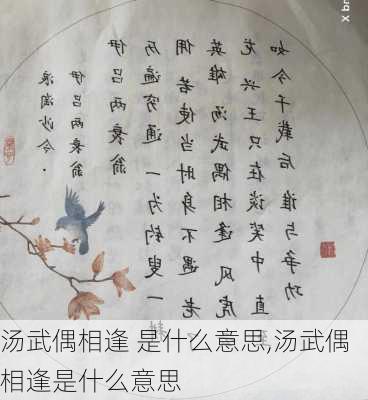 浪淘沙令·
伊吕两衰翁
伊吕两衰翁
历遍穷通一为钓叟一
佣若使当时身不遇老
英雄汤武偶相逢风虎
龙兴王只在谈笑中直
如今千载后谁与争功
汤武偶相逢 是什么意思,汤武偶
相逢是什么意思